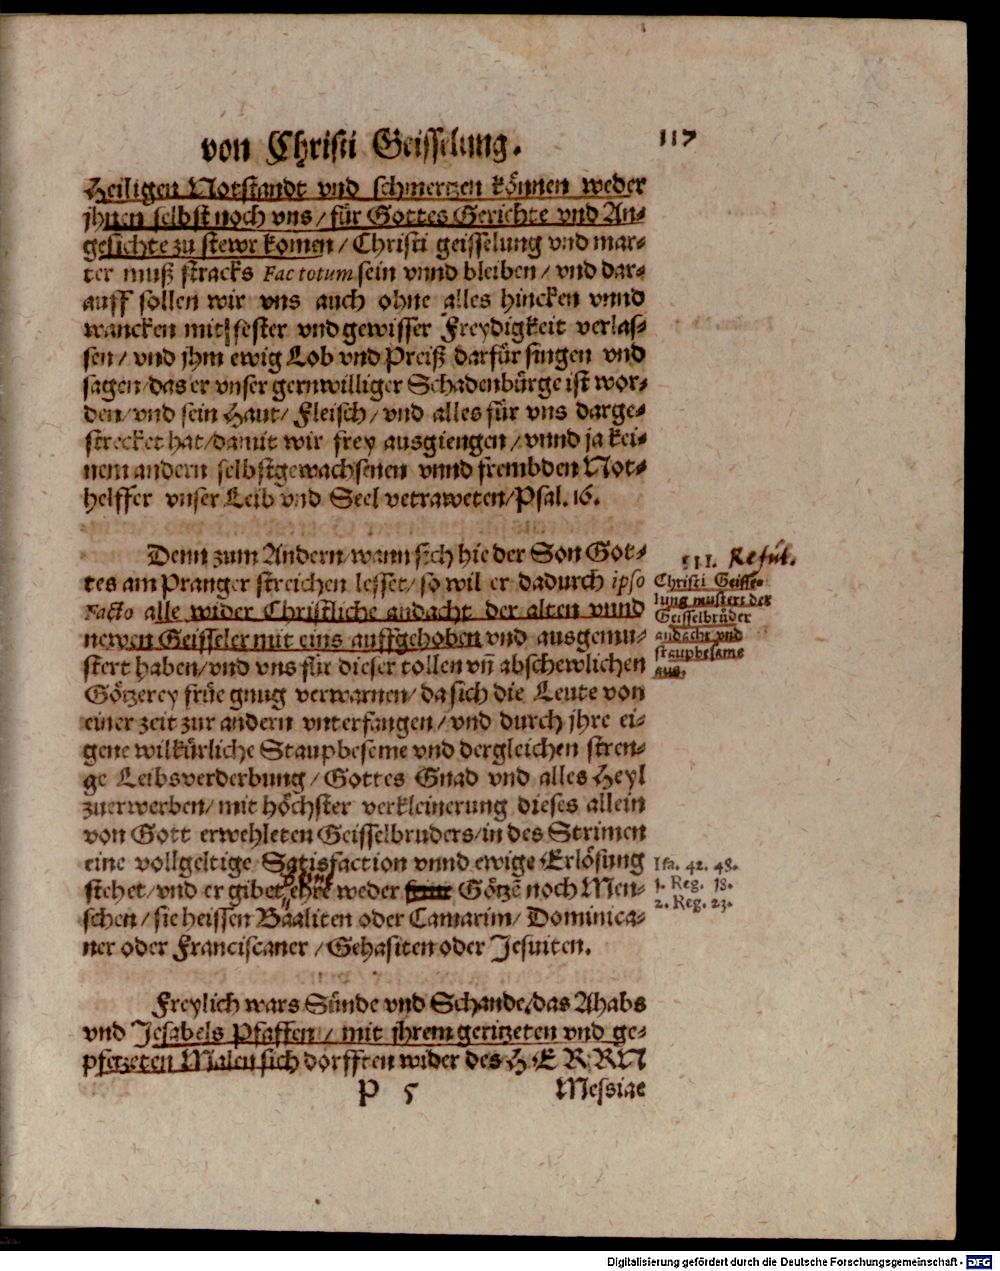 von Christi Geisselung. 117
Heiligen Notstandt vnd schmertzen können weder
jhnen selbst noch vns / für Gottes Gerichte vnd An-
gesichte zu stewr komen / Christi geisselung vnd mar-
ter muß stracks Fac totum sein vnnd bleiben / vnd dar-
auff sollen wir vns auch ohne alles hincken vnnd
wancken mit fester vnd gewisser Freydigkeit verlas-
sen / vnd jhm ewig Lob vnd Preiß darfür singen vnd
sagen / das er vnser gernwilliger Schadenbürge ist wor-
den / vnd sein Haut / Fleisch / vnd alles für vns darge-
strecket hat / damit wir frey ausgiengen / vnnd ja kei-
nem andern selbstgewachsenen vnnd frembden Not-
helffer vnser Leib vnd Seel vetraweten / Psal. 16.
Denn zum Andern / wann sich hie der Son Got-
tes am Pranger streichen lesset / so wil er dadurch ipso
Facto alle wider Christliche andacht der alten vnnd
newen Geisseler mit eins auffgehoben vnd ausgemu-
stert haben / vnd vns für dieser tollen vn̄ abschewlichen
Götzerey früe gnug verwarnen / da sich die Leute von
einer zeit zur andern vnterfangen / vnd durch jhre ei-
gene wilkürliche Staupbeseme vnd dergleichen stren-
ge Leibsverderbung / Gottes Gnad vnd alles Heyl
zuerwerben / mit höchster verkleinerung dieses allein
von Gott erwehleten Geisselbruders / in des Strimen
eine vollgeltige Satisfaction vnnd ewige Erlösung
stehet / vnd er gibet ehre weder Götzē noch Men-
schen / sie heissen Baaliten oder Camarim / Dominica-
ner oder Franciscaner / Gehasiten oder Jesuiten.
Freylich wars Sünde vnd Schande / das Ahabs
vnd Jesabels Pfaffen / mit jhrem geritzeten vnd ge-
pfetzeten Malen sich dorfften wider des HERRN
P 5 Messiae
III. Refut.
Christi Geisse-
lung mustert der
Geisselbrüder
andacht vnd
staupbeseme
aus.
Isa. 42. 48.
1. Reg. 18.
2. Reg. 23.
Digitalisierung gefördert durch die Deutsche Forschungsgemeinschaft - DFG